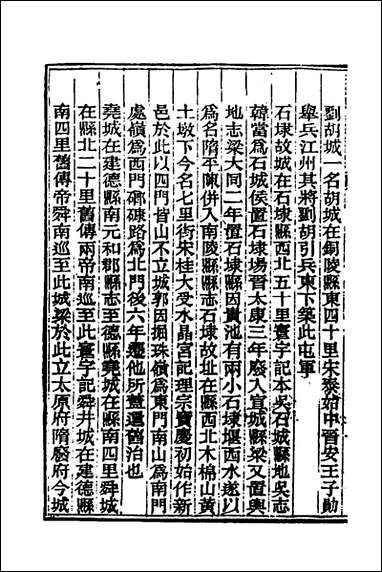 劉胡城一名胡城在銅陵縣東四十里宋泰始中晉安王子勛
舉兵江州其將劉胡引兵東下築此屯軍
石埭故城在石埭縣西北五十里寰宇記本吳石城縣地吳志
韓當爲石城侯置石埭場晉太康三年廢入宣城縣梁又置輿
地志梁大同二年置石埭縣因貴池有兩小石埭堰西水遂以
爲名隋平陳併入南陵縣縣志石埭故址在縣西北木棉山黃
土墩下今名七里街宋桂大受水晶宮記理宗寶慶初始作新
邑於此以四門皆山不立城郭因掘珠嶺爲東門南山爲南門
處嶺爲西門磵磜路爲北門後六年遷他所蓋還舊治也
堯城在建德縣南元和郡縣志至德縣堯城在縣南四里舜城
在縣北二十里舊傳兩帝南巡至此寰宇記舜井城在建德縣
南四里舊傳帝舜南巡至此城梁於此立太原府隋廢府今城